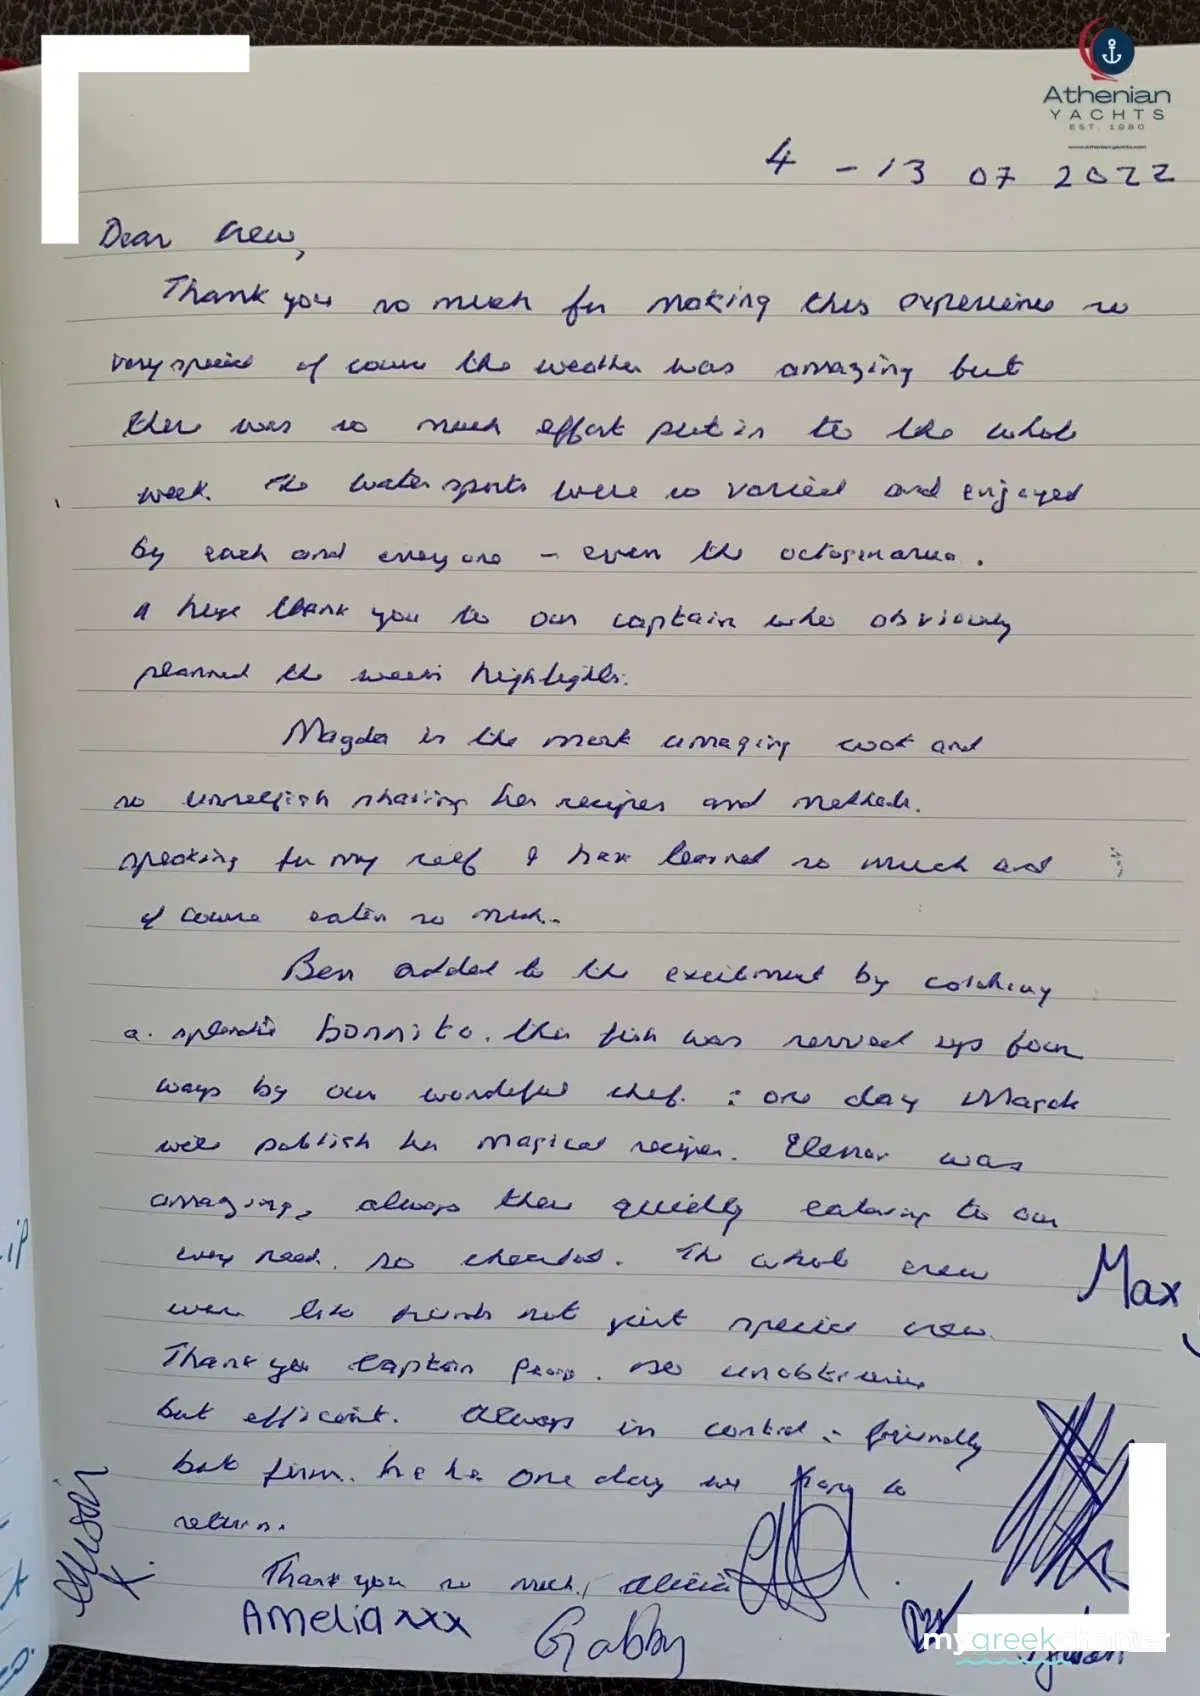 Athenian
YACHTS
EST. 1980
www.athenianyachts.com
4 - 13 07 2022
Dear Crew,
Thank you so much for making this experience so
very special of course the weather was amazing but
there was so much effort put in to the whole
week. The water sports were so varied and enjoyed
by each and everyone - even the octogenarian.
A huge thank you to our captain who obviously
planned the weeks highlights.
Magda is the most amazing cook and
so unselfish sharing her recipes and methods.
speaking for my self I have learned so much and
of course eaten so much.
Ben added to the excitement by catching
a splendid bonnito. this fish was served up four
ways by our wonderful chef. : one day Magda
will publish her magical recipes. Elenor was
amazing, always there quietly catering to our
every need. so cheerful. The whole crew
were like friends not just special crew.
Thank you Captain so unobtrusive
but efficient. Always in control : friendly
but firm. one day we hope to
return.
Thank you so much, Alicia
Max
Allison X
Amelia xxx
Gabby
mygreekcharter